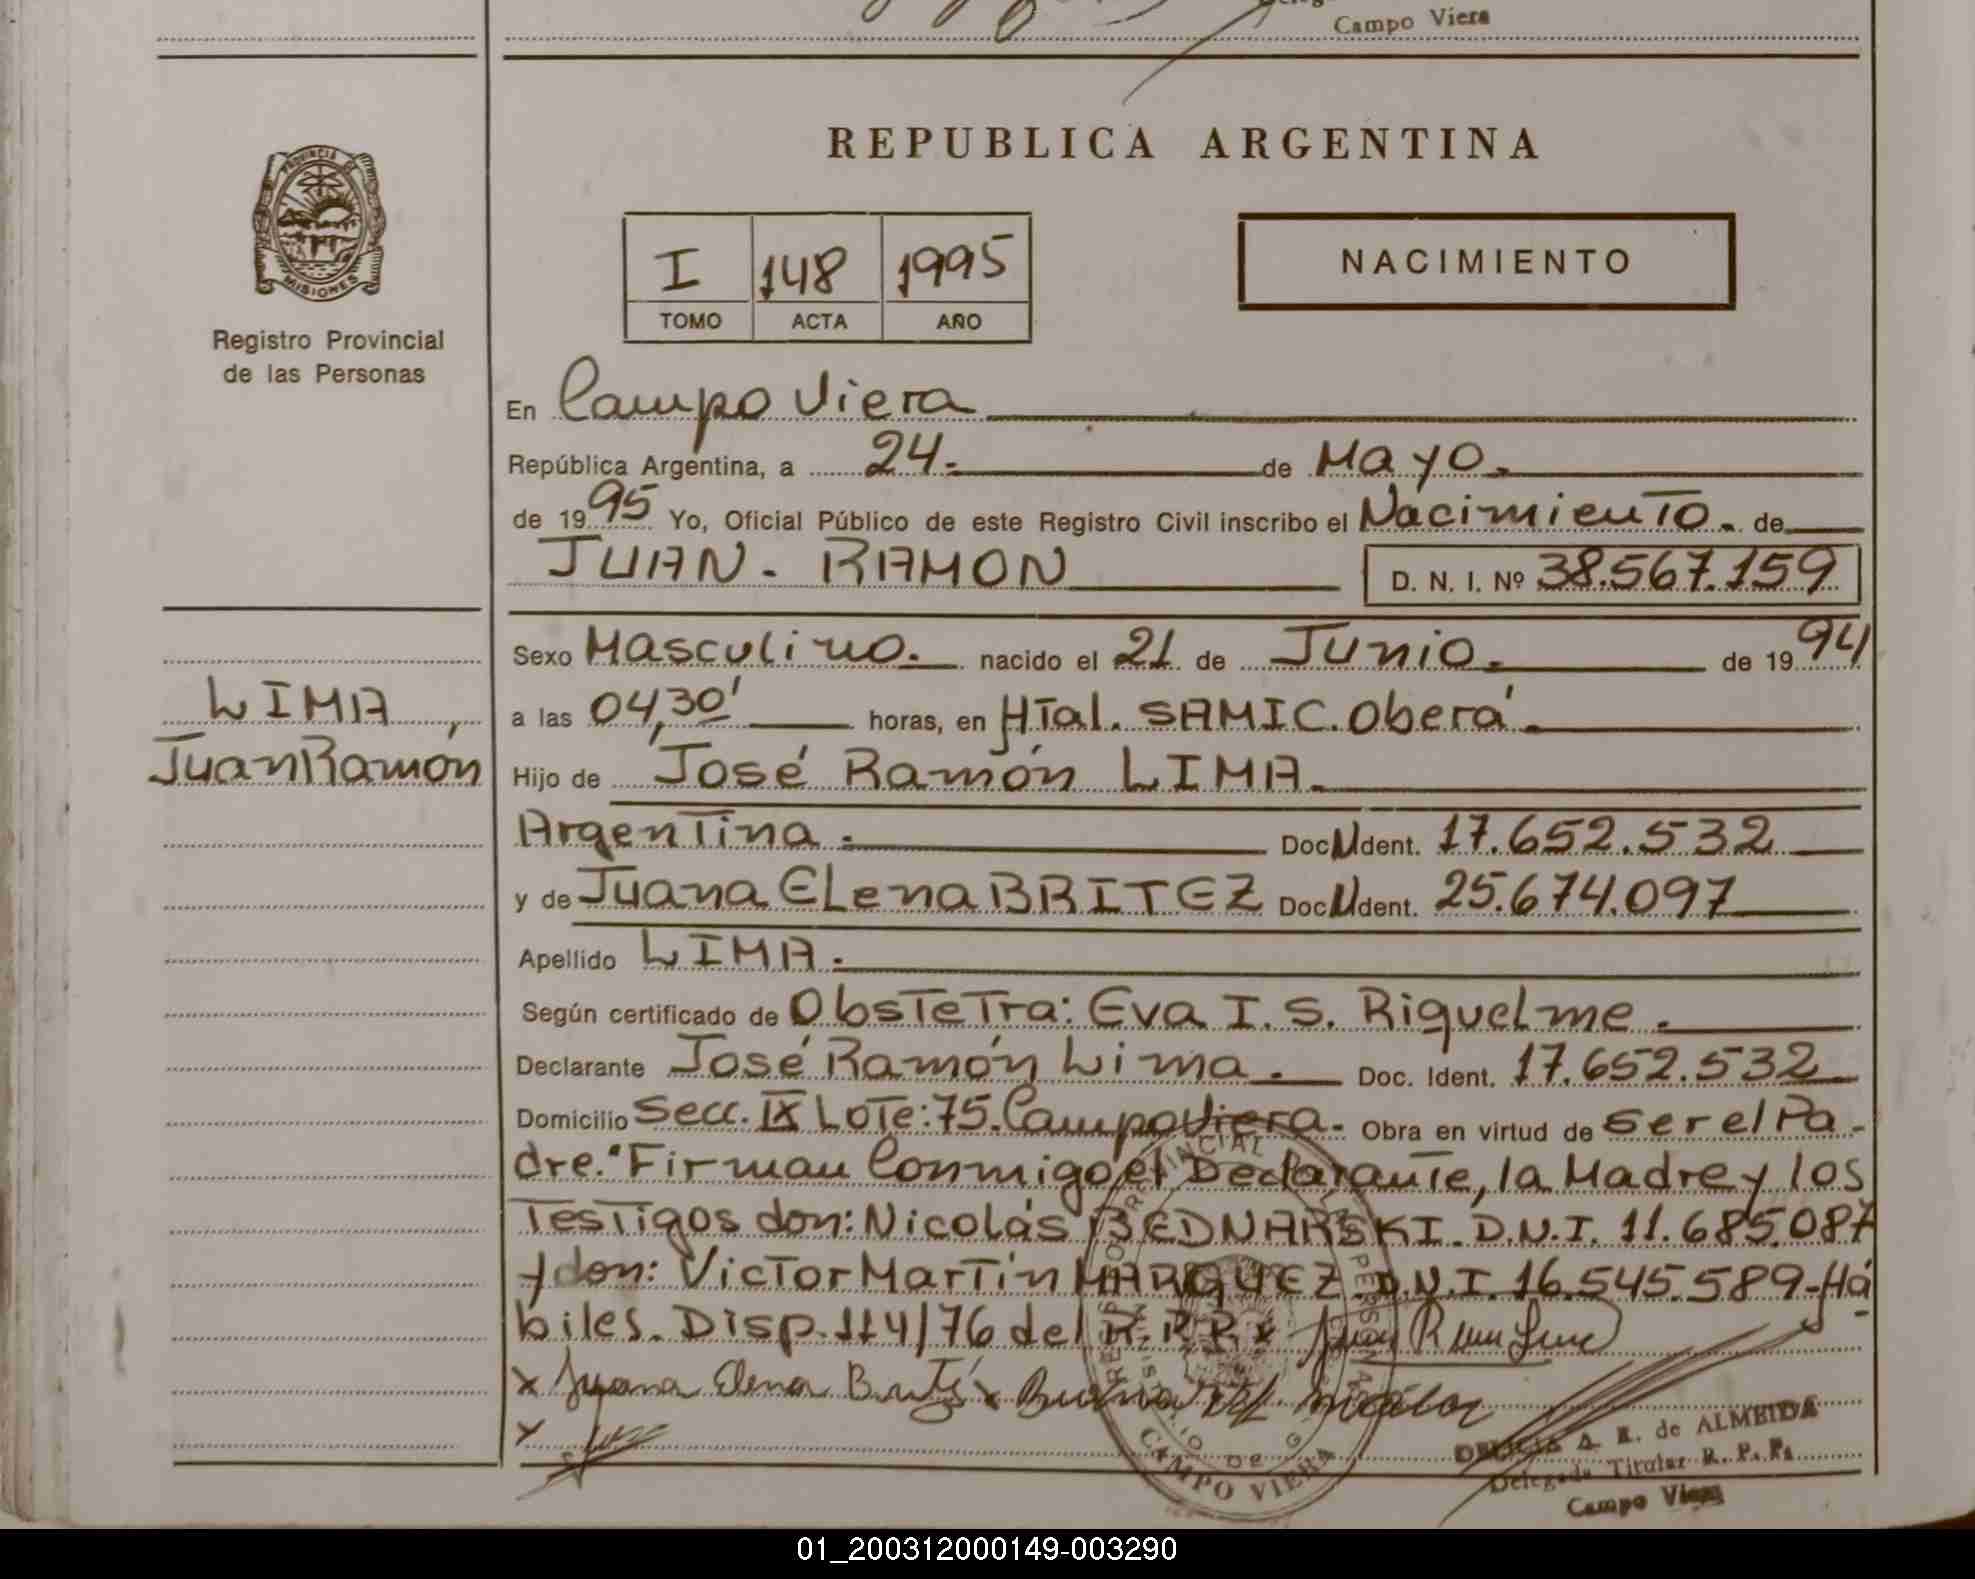 Campo Viera
REPUBLICA ARGENTINA
PROVINCIA DE MISIONES
Registro Provincial
de las Personas
I 148 1995
TOMO ACTA AÑO
NACIMIENTO
En Campo Viera
República Argentina, a 24.- de Mayo.
de 1995 Yo, Oficial Público de este Registro Civil inscribo el Nacimiento. de
JUAN - RAMON
D. N. I. Nº 38.567.159
Sexo Masculino. nacido el 21 de Junio. de 1994
LIMA,
Juan Ramón
a las 04,30' horas, en Htal. SAMIC. Oberá.
Hijo de José Ramón LIMA.
Argentina. Doc N Ident. 17.652.532
y de Juana ELena BRITEZ Doc N Ident. 25.674.097
Apellido LIMA.
Según certificado de Obstetra: Eva I. S. Riquelme.
Declarante José Ramón Lima. Doc. Ident. 17.652.532
Domicilio Secc. IX Lote: 75. Campo Viera. Obra en virtud de ser el Pa-
dre. Firman Conmigo el Declarante, la Madre y los
Testigos don: Nicolás BEDNARSKI. D.N.I. 11.685.087
y don: Victor Martín MARQUEZ. D.N.I. 16.545.589-Há
biles. Disp. 114/76 del R.P.P. x
x Juana Elena Britéz x
x
CAMPO VIERA
DELICIA A. R. de ALMEIDA
Delegada Titular R. P. P.
Campo Viera
01_200312000149-003290